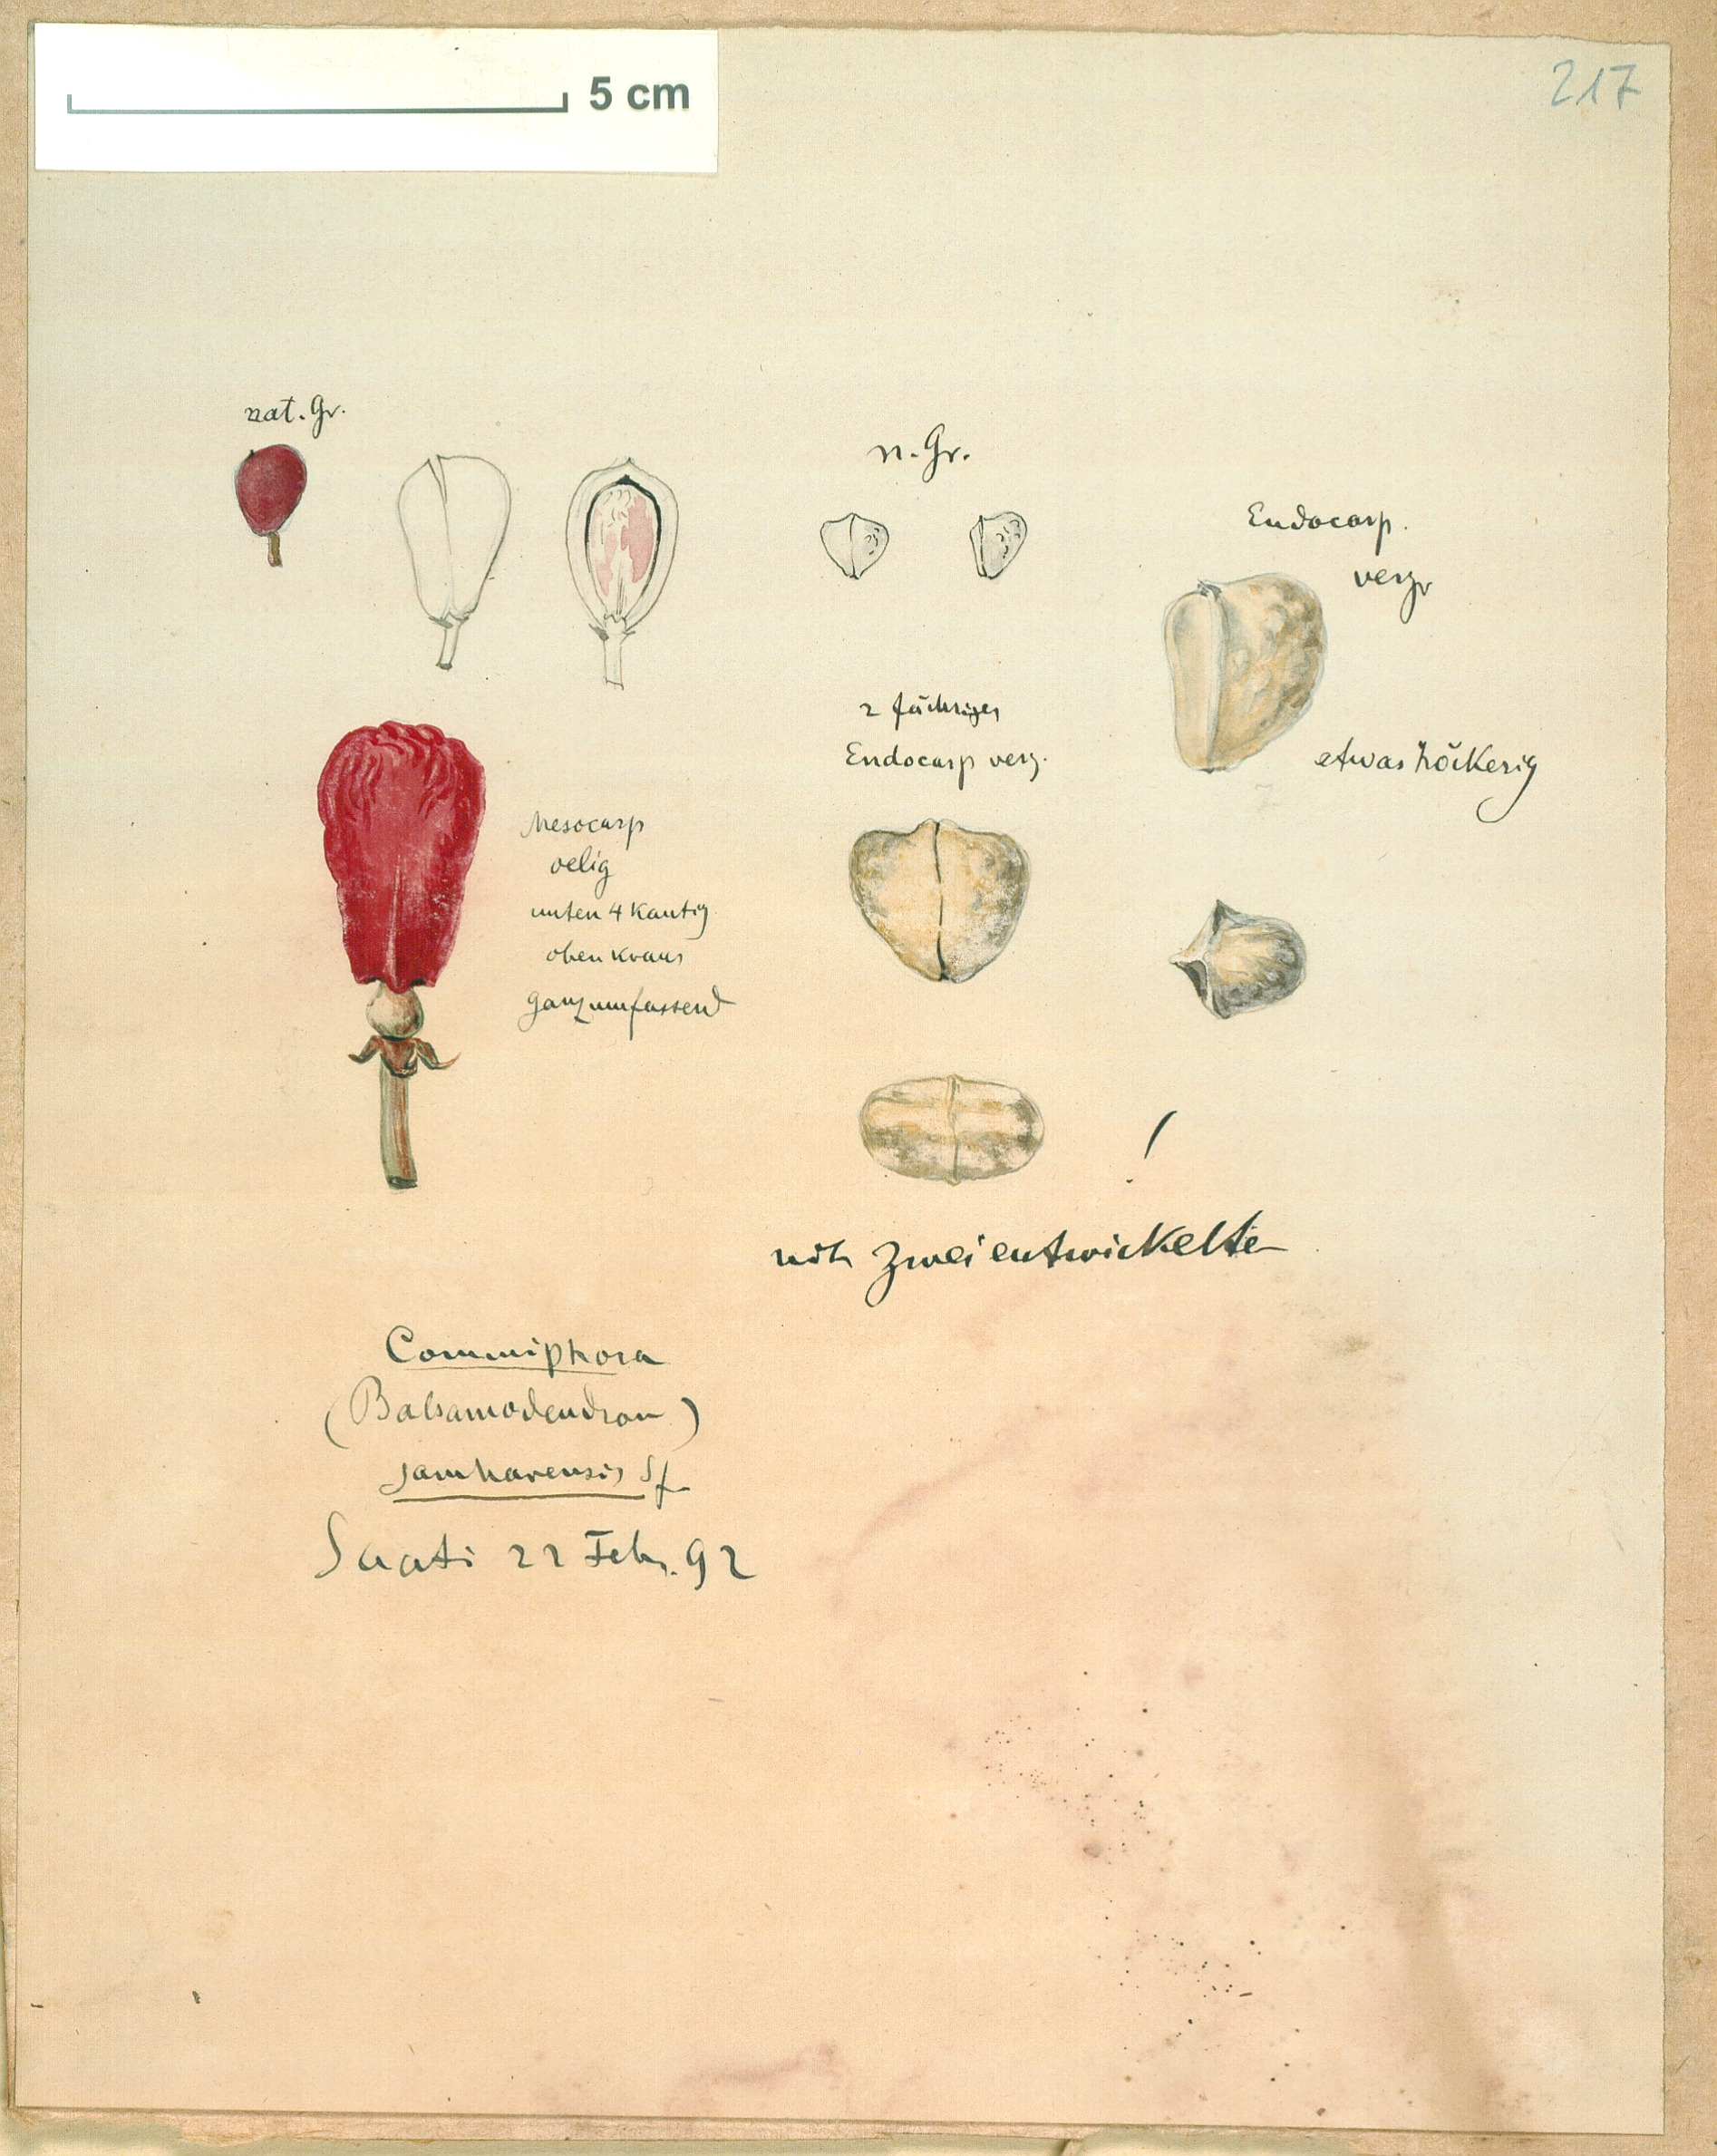 5 cm
217
nat. Gr.
n. Gr.
Endocarp.
vergr
2 fächriges
Endocarp verg.
etwas höckerig
Mesocarp
oelig
unten 4 kantig
oben kraus
ganz umfassend
!
mit zwei entwickelten
Commiphora
(Balsamodendron)
samharensis Sf.
Saati 22 Febr. 92